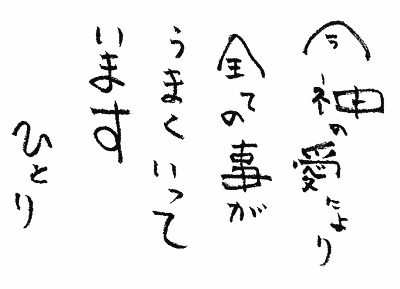 今神の愛により
全ての事が
うまくいって
います
ひとり